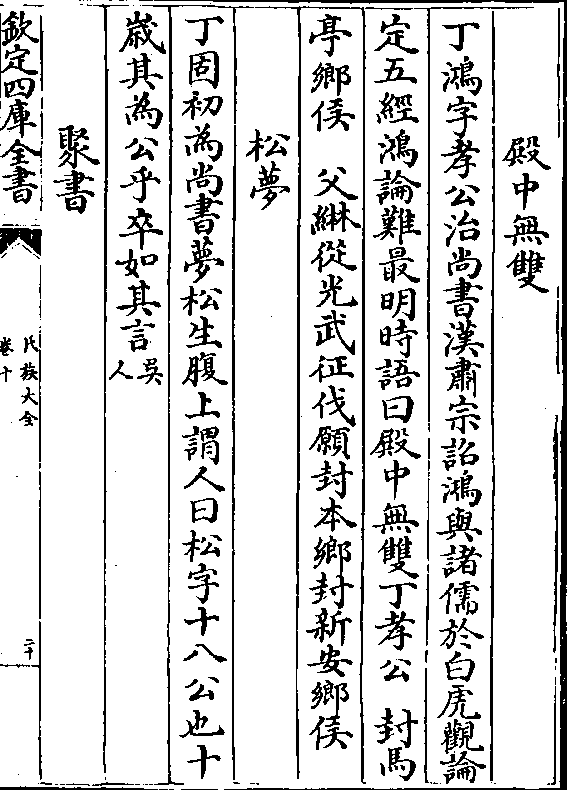 殿中無雙
丁鴻字孝公治尚書漢肅宗詔鴻與諸儒於白虎觀論
定五經鴻論難最明時語曰殿中無雙丁孝公　封馬
亭鄉侯　父綝從光武征伐願封本鄉封新安鄉侯
松夢
丁固初為尚書夢松生腹上謂人曰松字十八公也十
歳其為公乎卒如其言吳
人
聚書
欽定四庫全書
氏族大全
卷十
二十